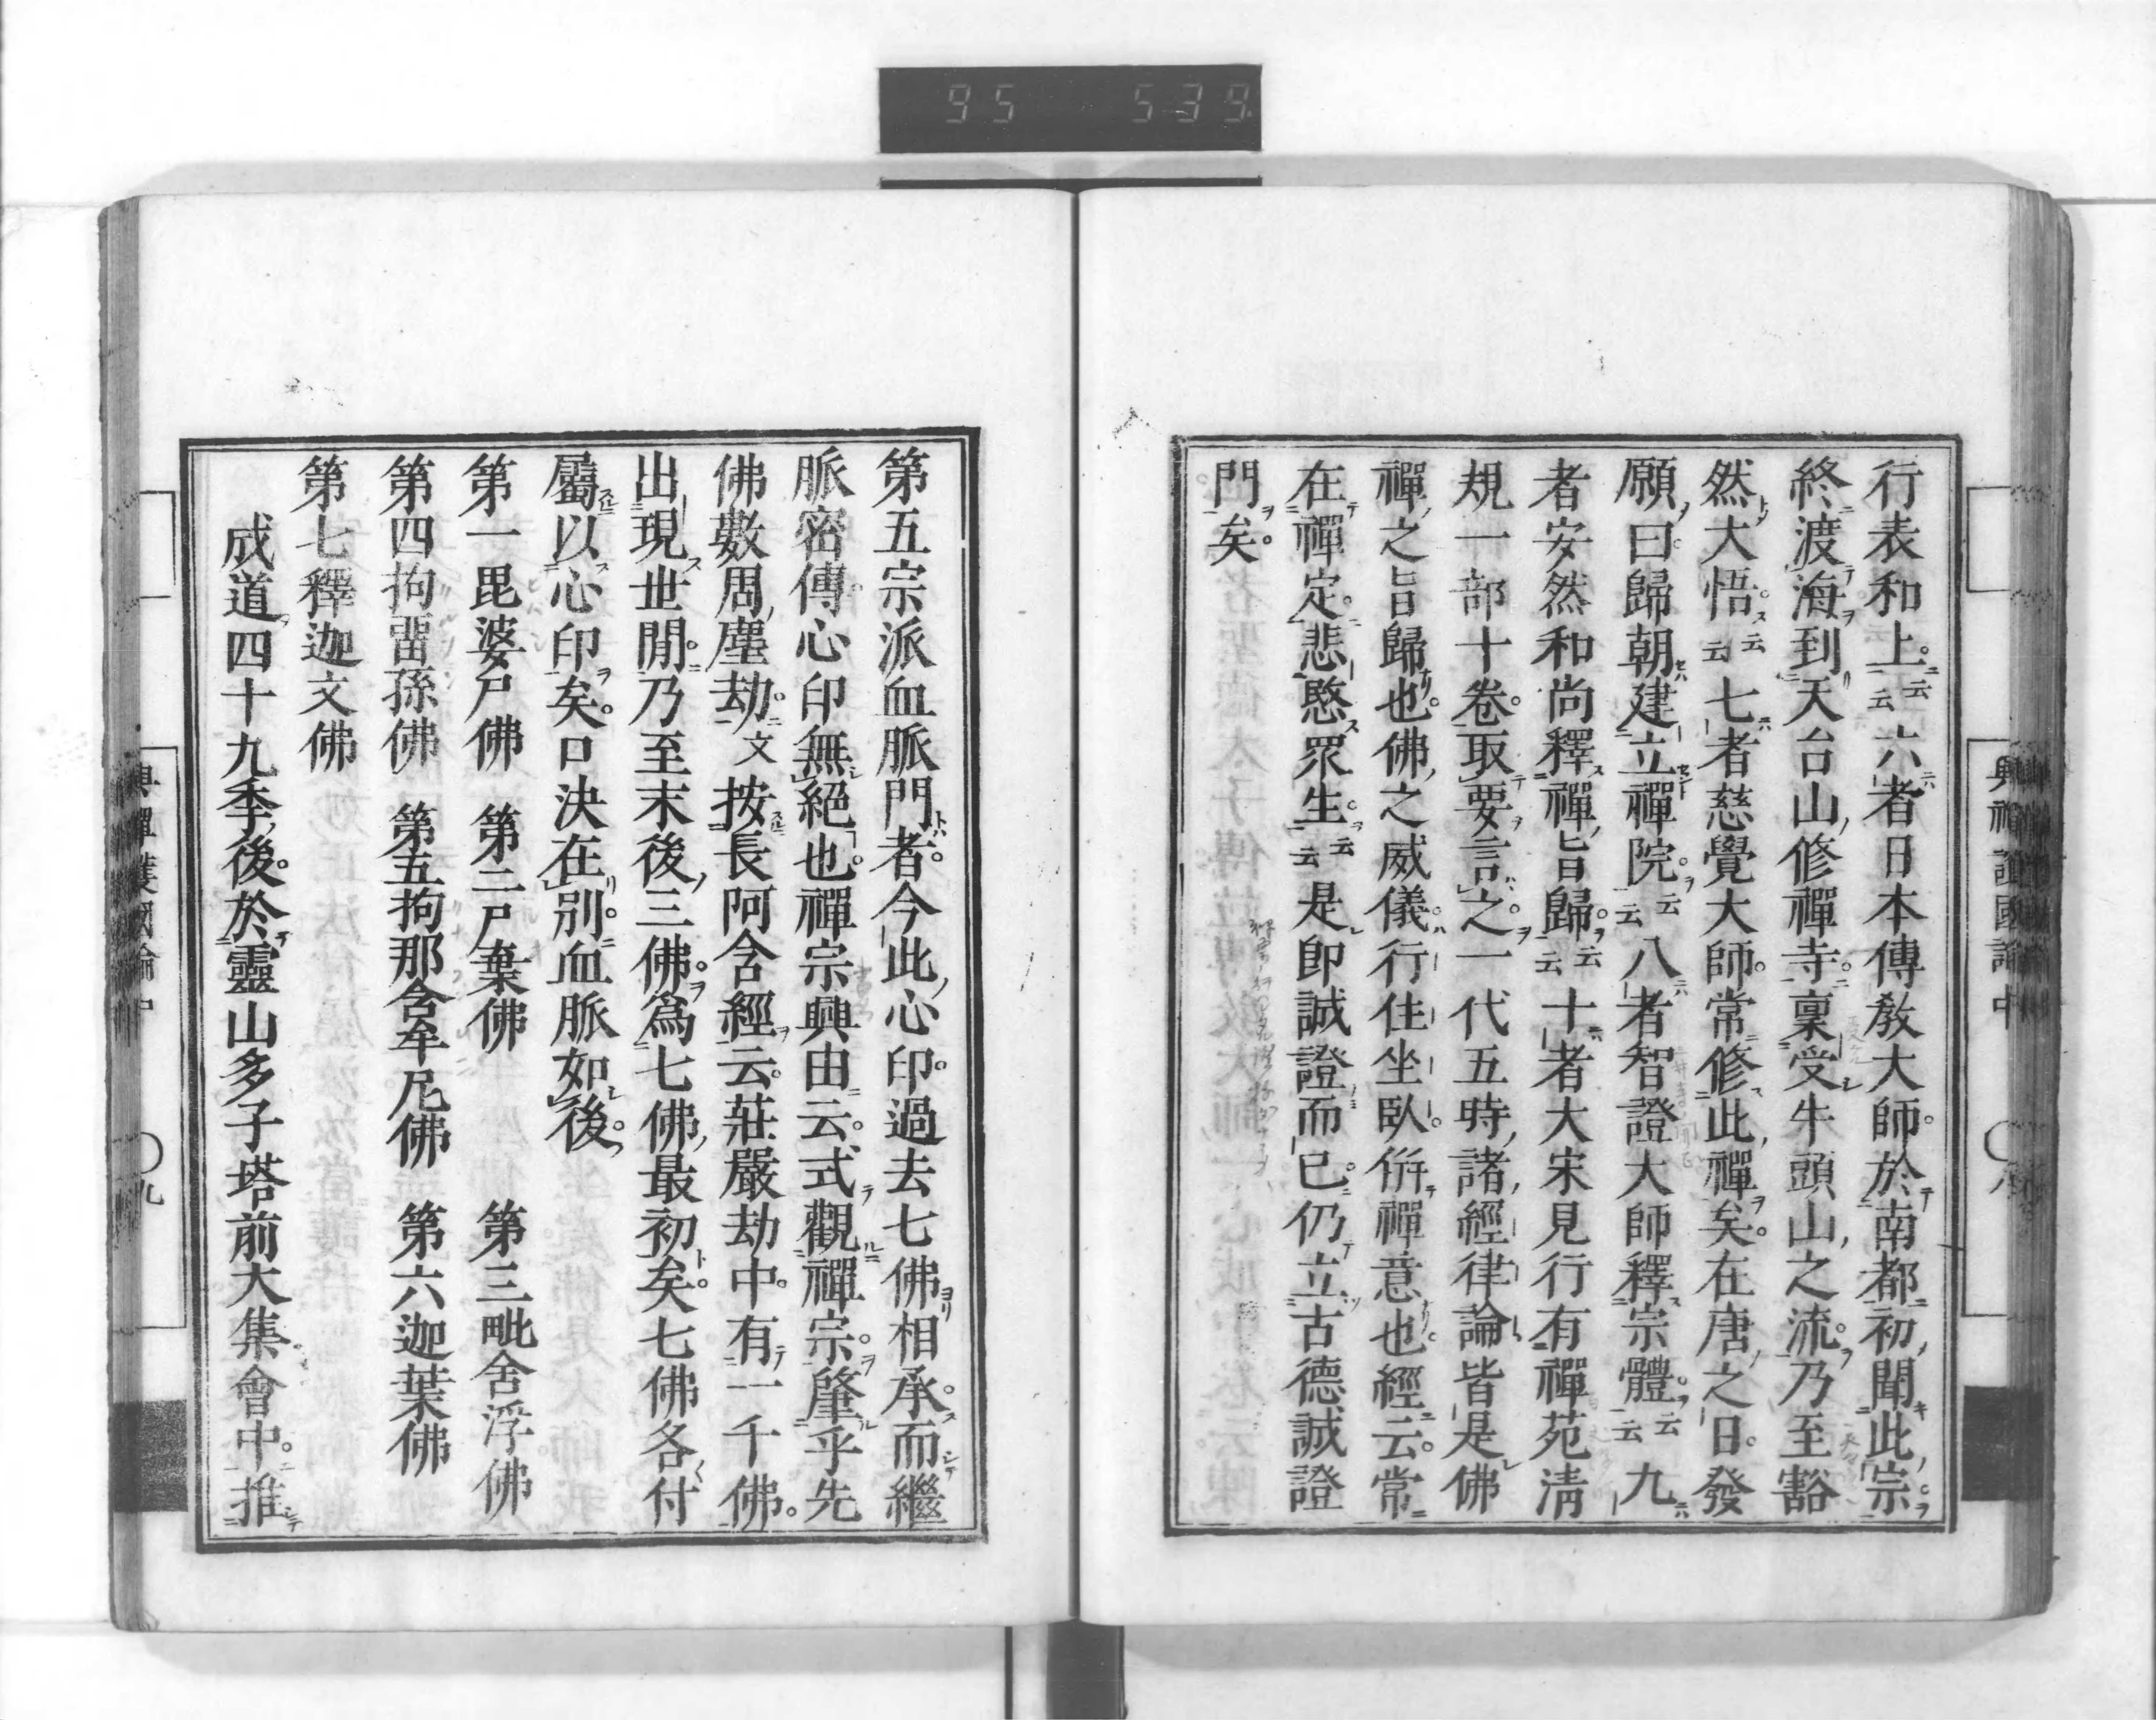 95 539
行表和上云云六者日本傳教大師於南都初聞此宗
終渡海到天台山修禪寺稟受牛頭山之流乃至豁
然大悟云云七者慈覺大師常修此禪矣在唐之日發
願曰歸朝建立禪院云云八者智證大師釋宗體云云九
者安然和尚釋禪旨歸云云十者大宋見行有禪苑淸
規一部十卷取要言之一代五時諸經律論皆是佛
禪之旨歸也佛之威儀行住坐臥併禪意也經云常
在禪定悲愍眾生云云是即誠證而已仍立古德誠證
門矣
興禪護國論中 八
第五宗派血脈門者今此心印過去七佛相承而繼
脈密傳心印無絕也禪宗興由云式觀禪宗肇乎先
佛數周塵劫文按長阿含經云莊嚴劫中有一千佛
出現世閒乃至末後三佛爲七佛最初矣七佛各付
屬以心印矣口決在別血脈如後
第一毘婆尸佛 第二尸棄佛 第三毗舍浮佛
第四拘畱孫佛 第五拘那含牟尼佛 第六迦葉佛
第七釋迦文佛
成道四十九季後於靈山多子塔前大集會中推
興禪護國論中 九